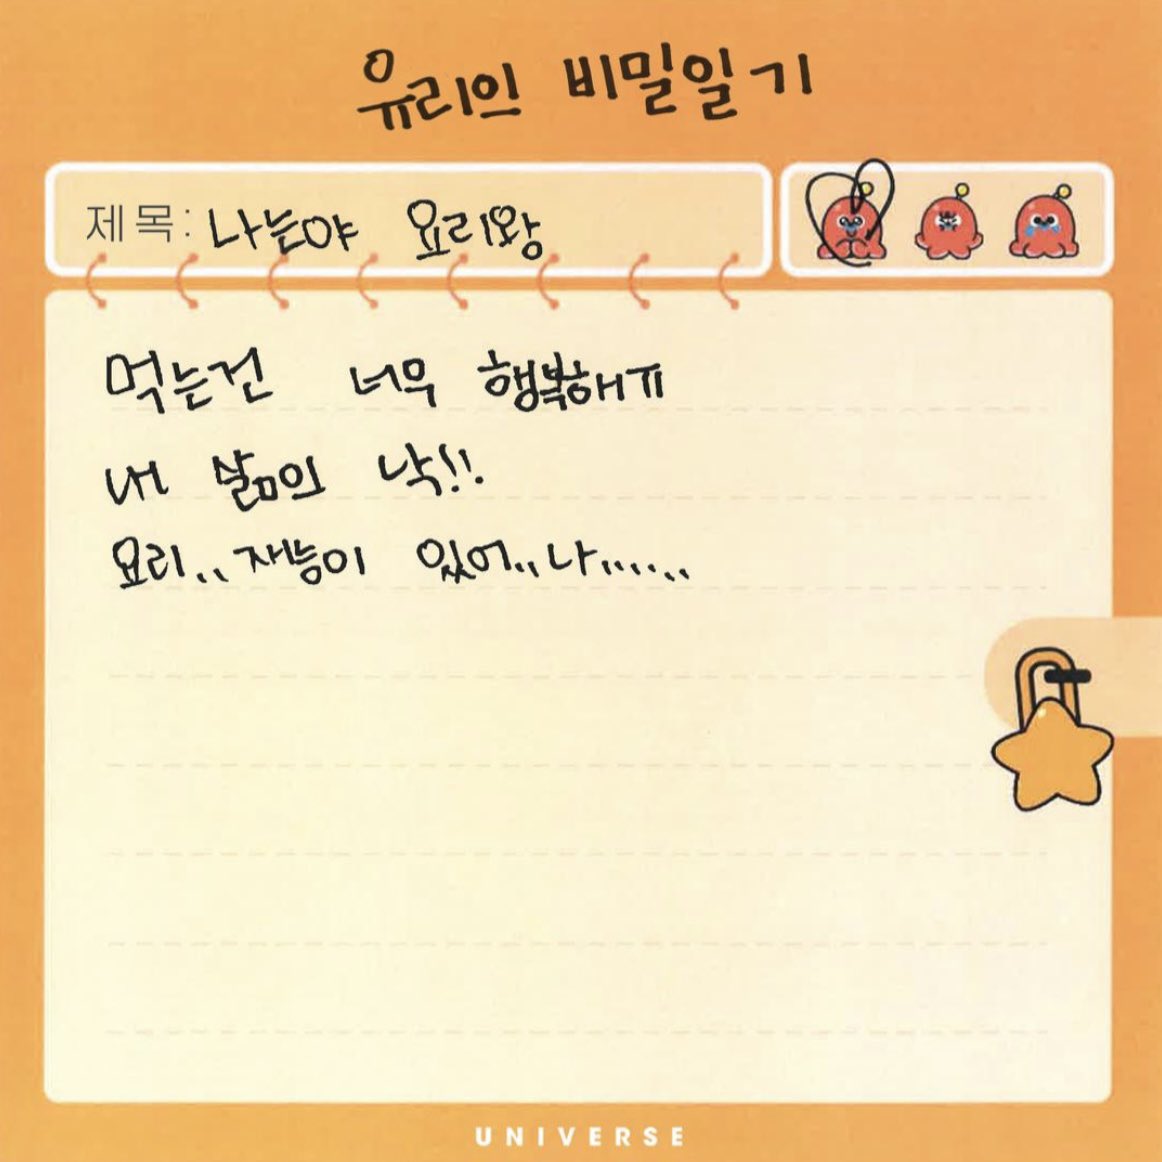 유리의 비밀일기
제목: 나는야 요리왕
먹는건 너무 행복해ㅠ
내 삶의 낙!!
요리..재능이 있어..나......
UNIVERSE